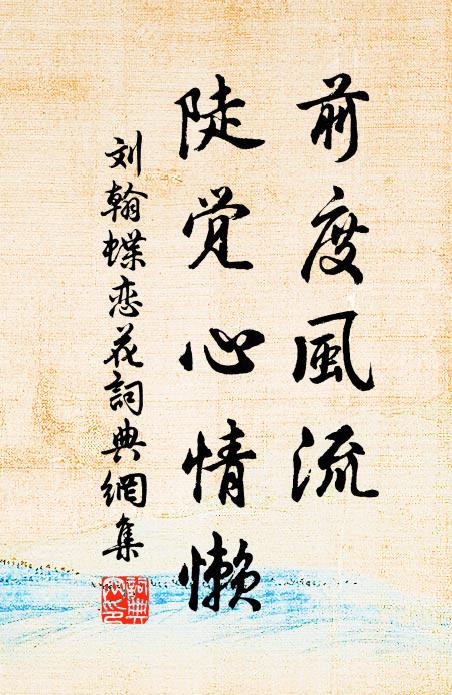 前度風流
陡觉心情懒
刘翰蝶恋花詞典網集